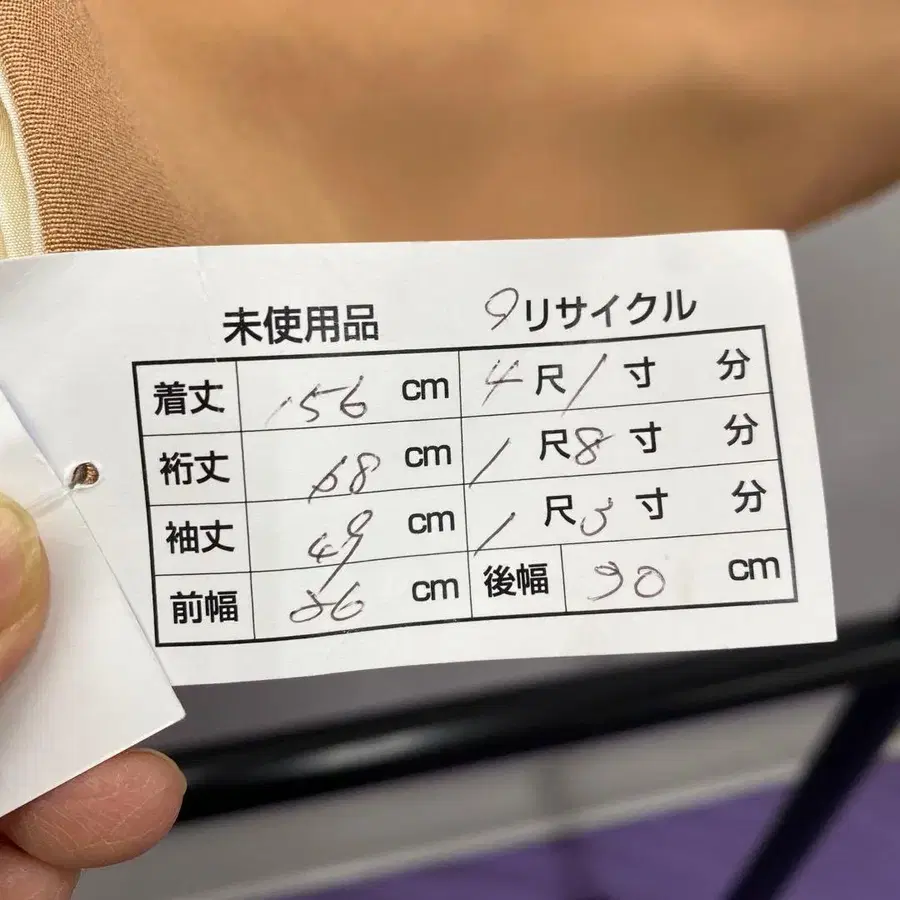 未使用品 9リサイクル
着丈 156 cm 4尺1寸 分
裄丈 68 cm 1尺8寸 分
袖丈 49 cm 1尺3寸 分
前幅 26 cm 後幅 30 cm